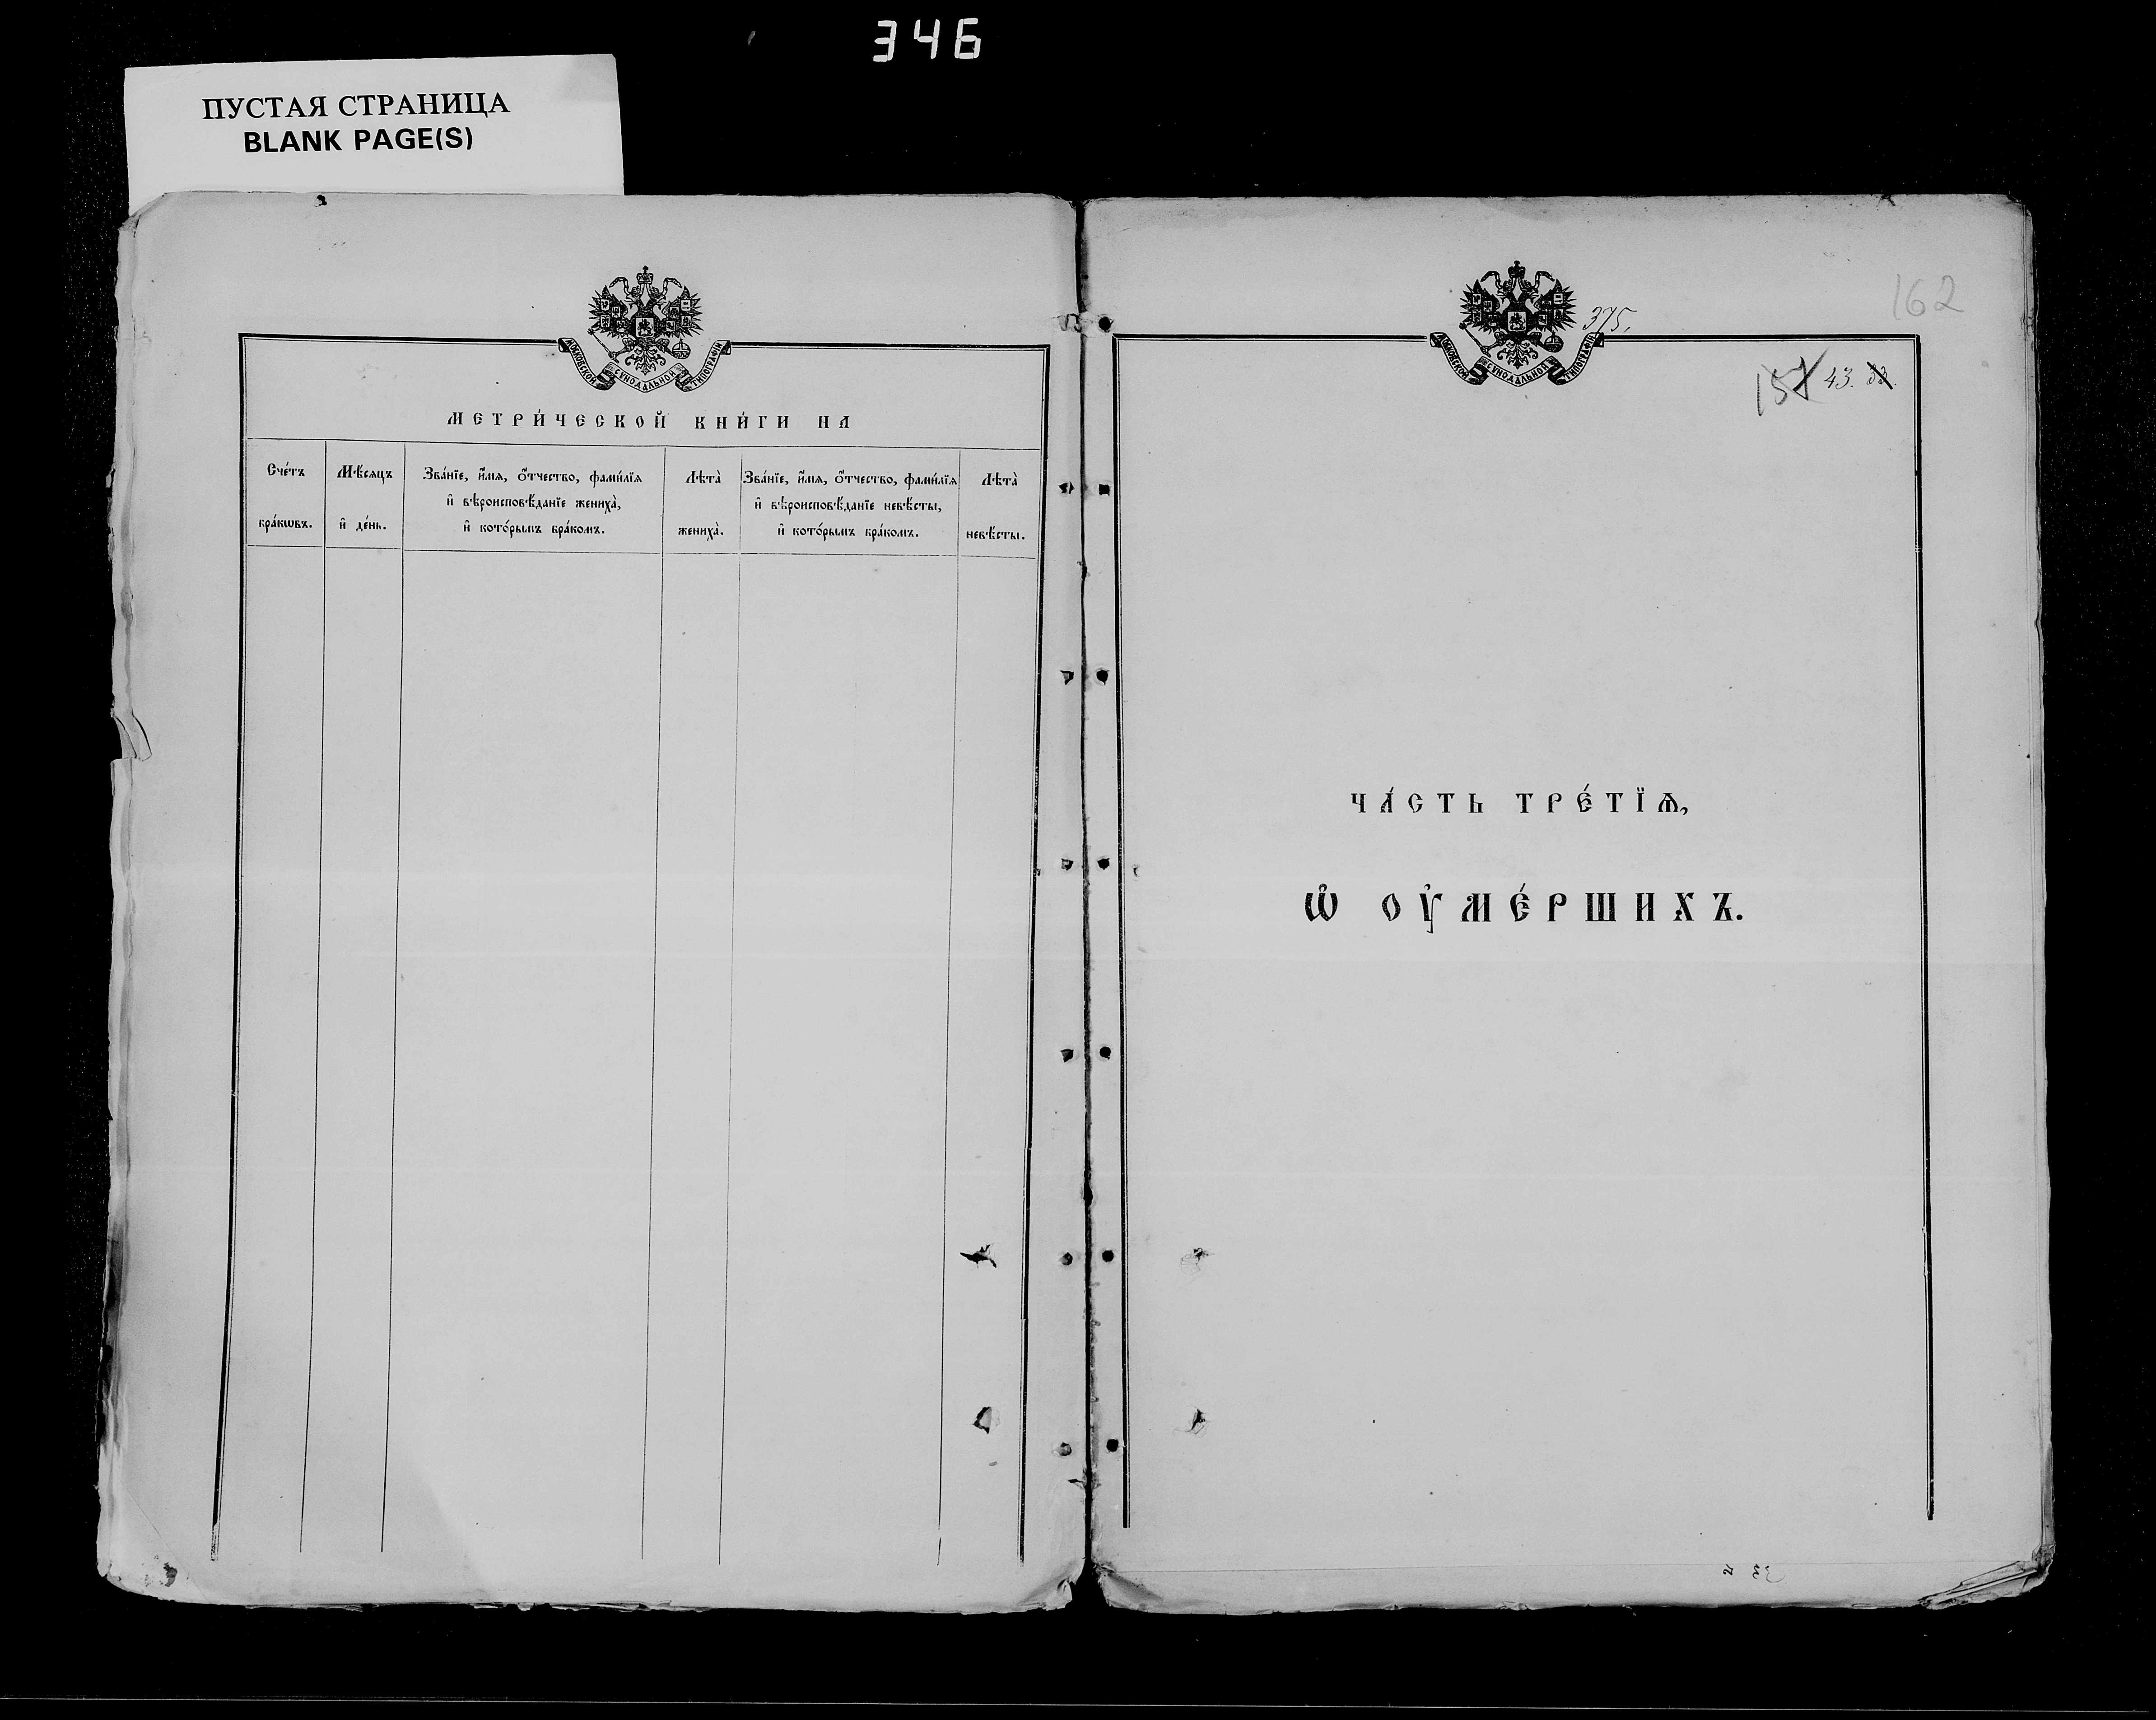 346
ПУСТАЯ СТРАНИЦА
BLANK PAGE(S)
МОСКОВСКОЙ СѴНОДАЛЬНОЙ ТИПОГРАФІИ
МЕТРИ́ЧЕСКОЙ КНИ́ГИ НА
Сче́тъ
бра́кѡвъ.
Мѣ́сяцъ
и҆ де́нь.
Зва́нїе, и҆́мя, ѻ҆́тчество, фами́лїя
и҆ вѣроисповѣ́данїе жениха̀,
и҆ кото́рымъ бра́комъ.
Лѣта̀
жениха̀.
Зва́нїе, и҆́мя, ѻ҆́тчество, фами́лїя
и҆ вѣроисповѣ́данїе невѣ́сты,
и҆ кото́рымъ бра́комъ.
Лѣта̀
невѣ́сты.
162
375.
МОСКОВСКОЙ СѴНОДАЛЬНОЙ ТИПОГРАФІИ
43.
ЧА́СТЬ ТРЕ́ТЇѦ,
Ѡ҆ ОУ҆МЕ́РШИХЪ.